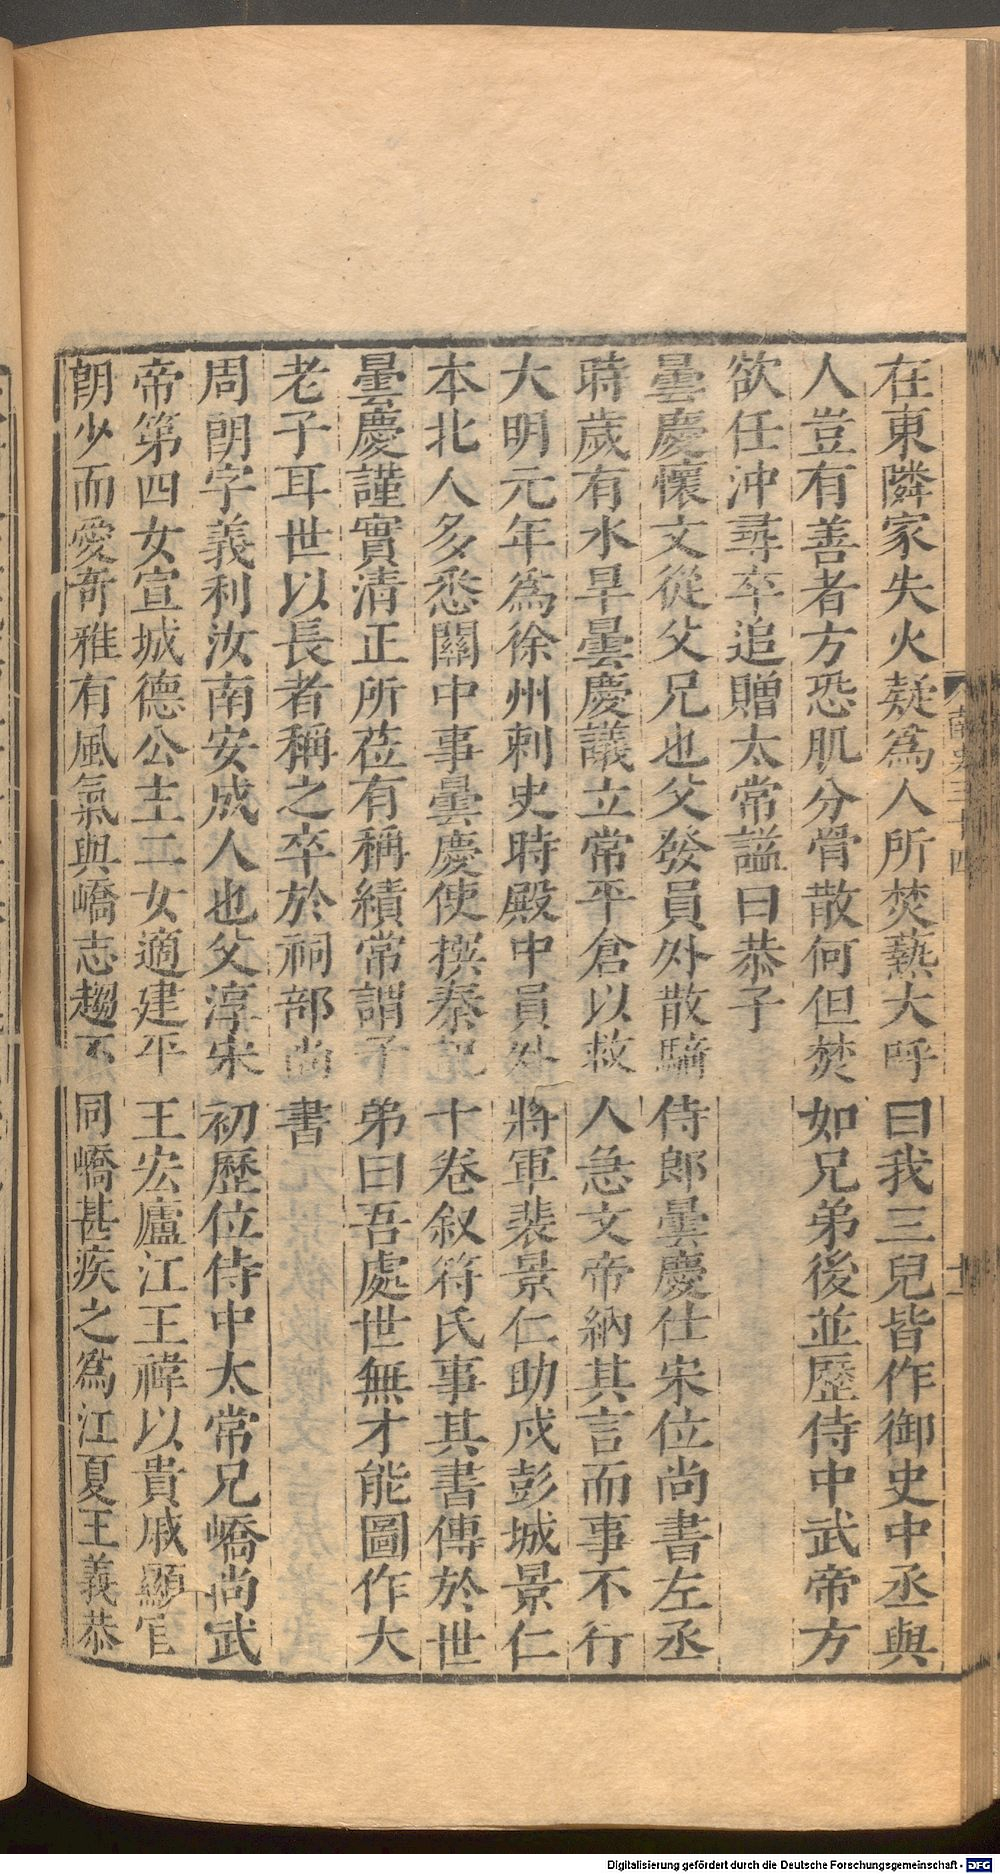 在東隣家失火疑爲人所焚爇大呼曰我三兒皆作御史中丞與
人豈有善者方恐肌分骨散何但焚如兄弟後並歷侍中武帝方
欲任沖尋卒追贈太常諡曰恭子
曇慶懷文從父兄也父發員外散騎侍郎曇慶仕宋位尚書左丞
時歲有水旱曇慶議立常平倉以救人急文帝納其言而事不行
大明元年爲徐州刺史時殿中員外將軍裴景仁助戍彭城景仁
本北人多悉關中事曇慶使撰秦記十卷叙苻氏事其書傳於世
曇慶謹實清正所莅有稱績常謂子弟曰吾處世無才能圖作大
老子耳世以長者稱之卒於祠部尚書
周朗字義利汝南安成人也父淳宋初歷位侍中太常兄嶠尚武
帝第四女宣城德公主二女適建平王宏廬江王褘以貴戚顯官
朗少而愛奇雅有風氣與嶠志趨不同嶠甚疾之爲江夏王義恭
南史三十四
十一
Digitalisierung gefördert durch die Deutsche Forschungsgemeinschaft - DFG